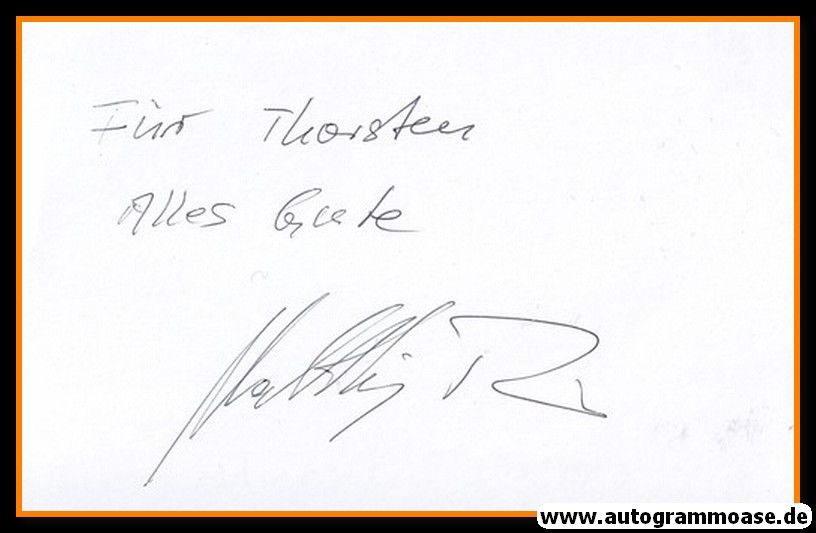 Für Thorsten
Alles Gute
www.autogrammoase.de